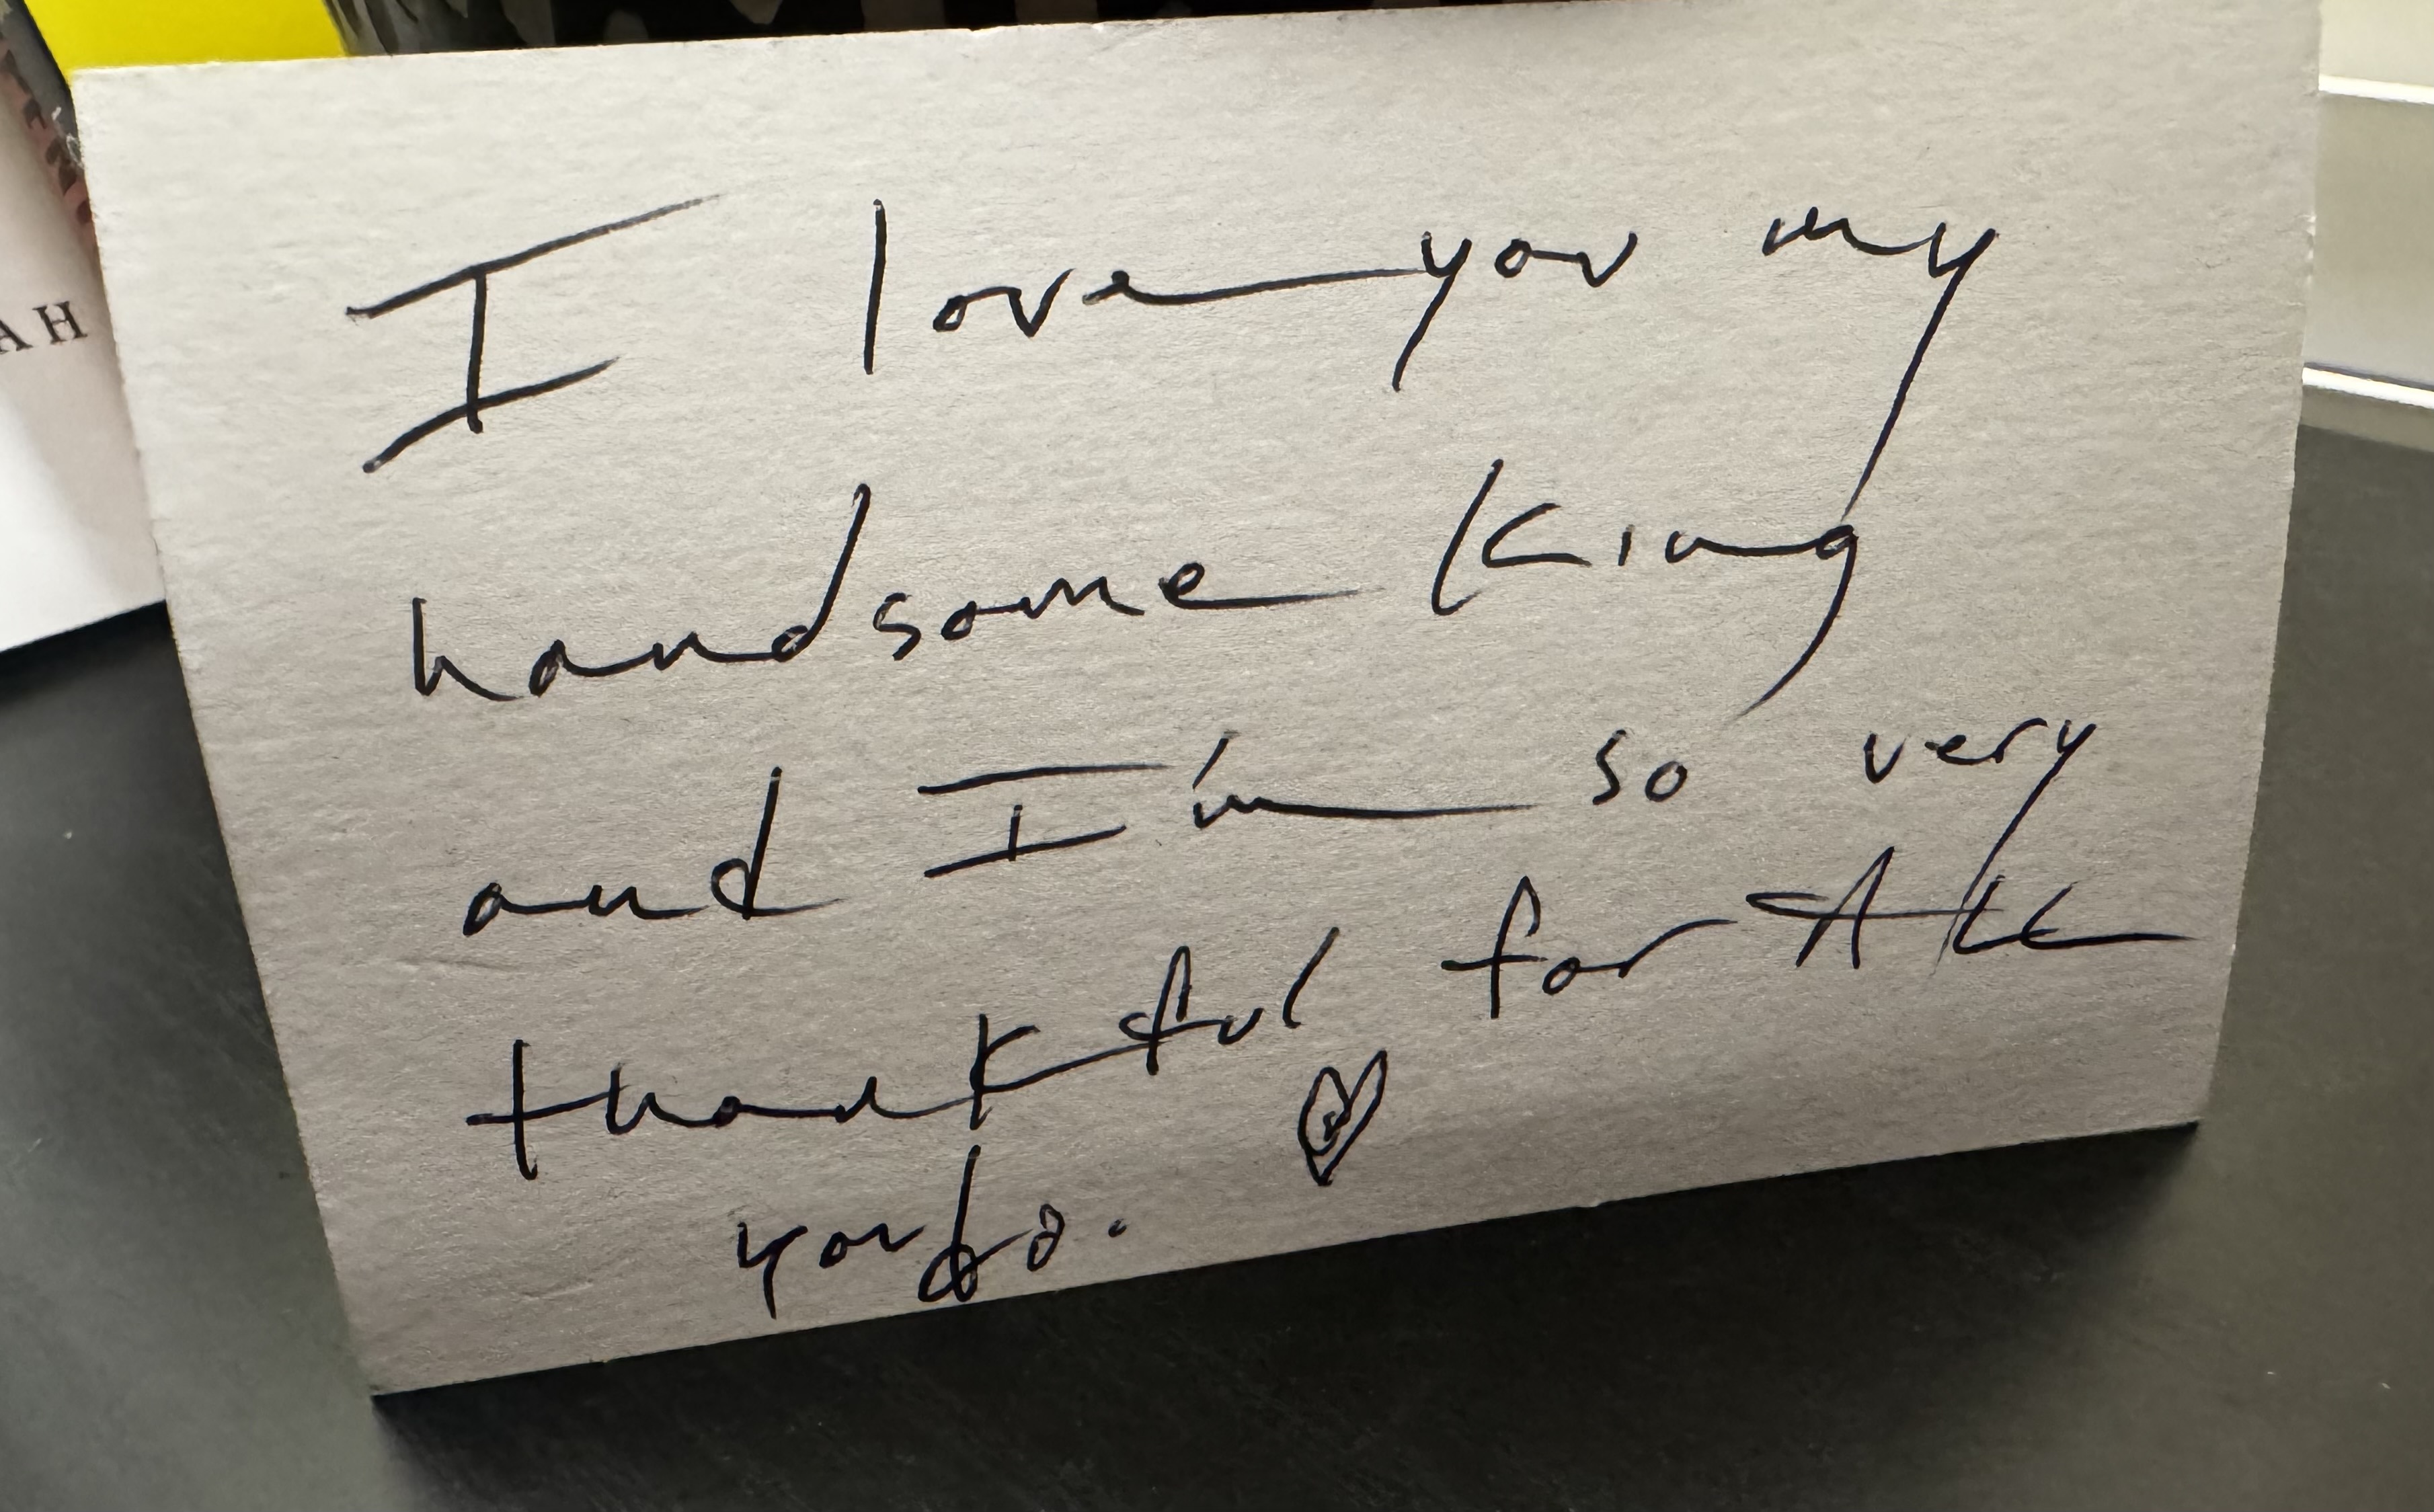 AH
I love you my
handsome King
and I'm so very
thankful for All
you do.